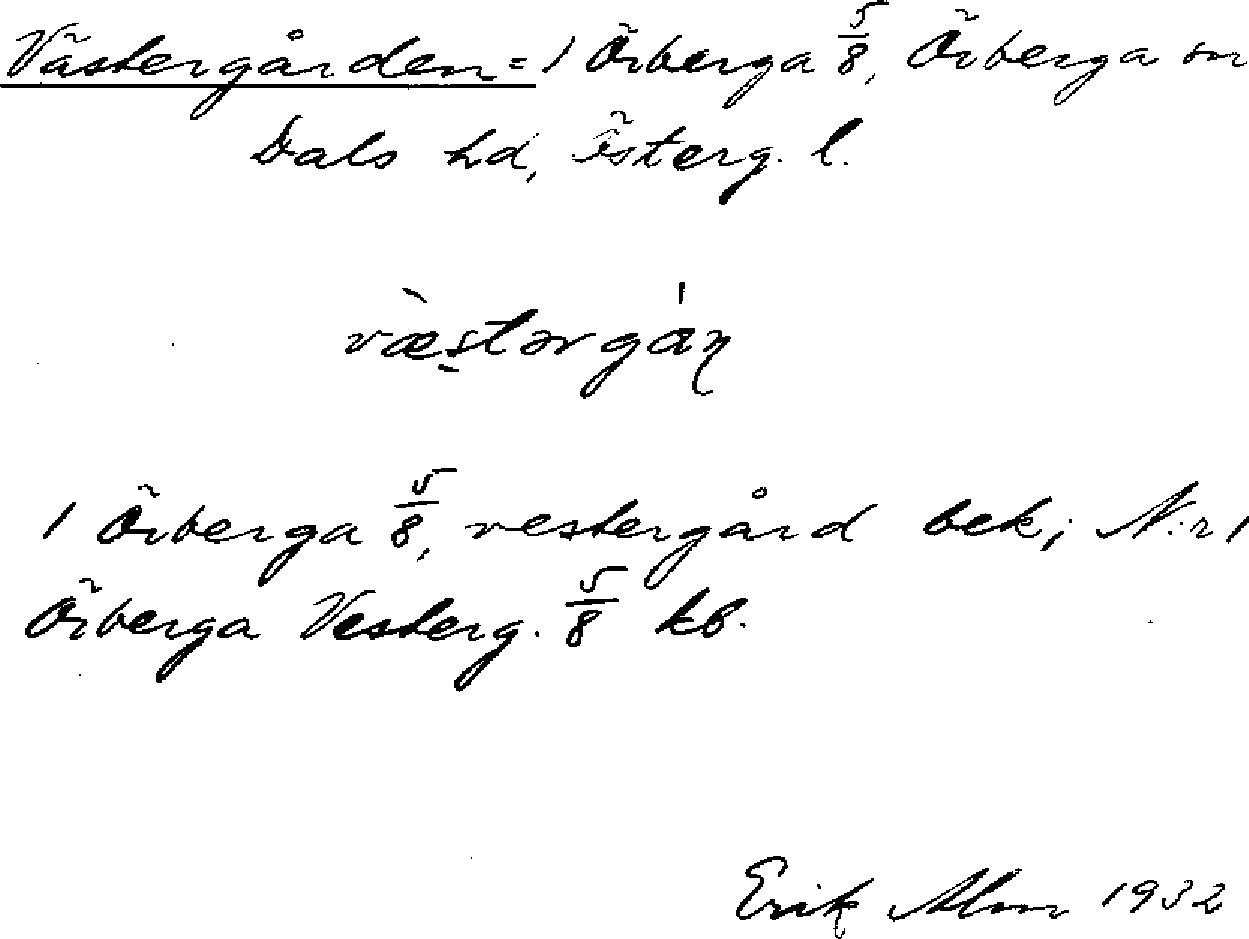 Västergården = 1 Örberga 5/8, Örberga sn
Dals hd, Österg. l.
væ̀stərgán̩
1 Örberga 5/8, vestergård bek; N:r 1
Örberga Vesterg. 5/8 kb.
Erik Alm 1932